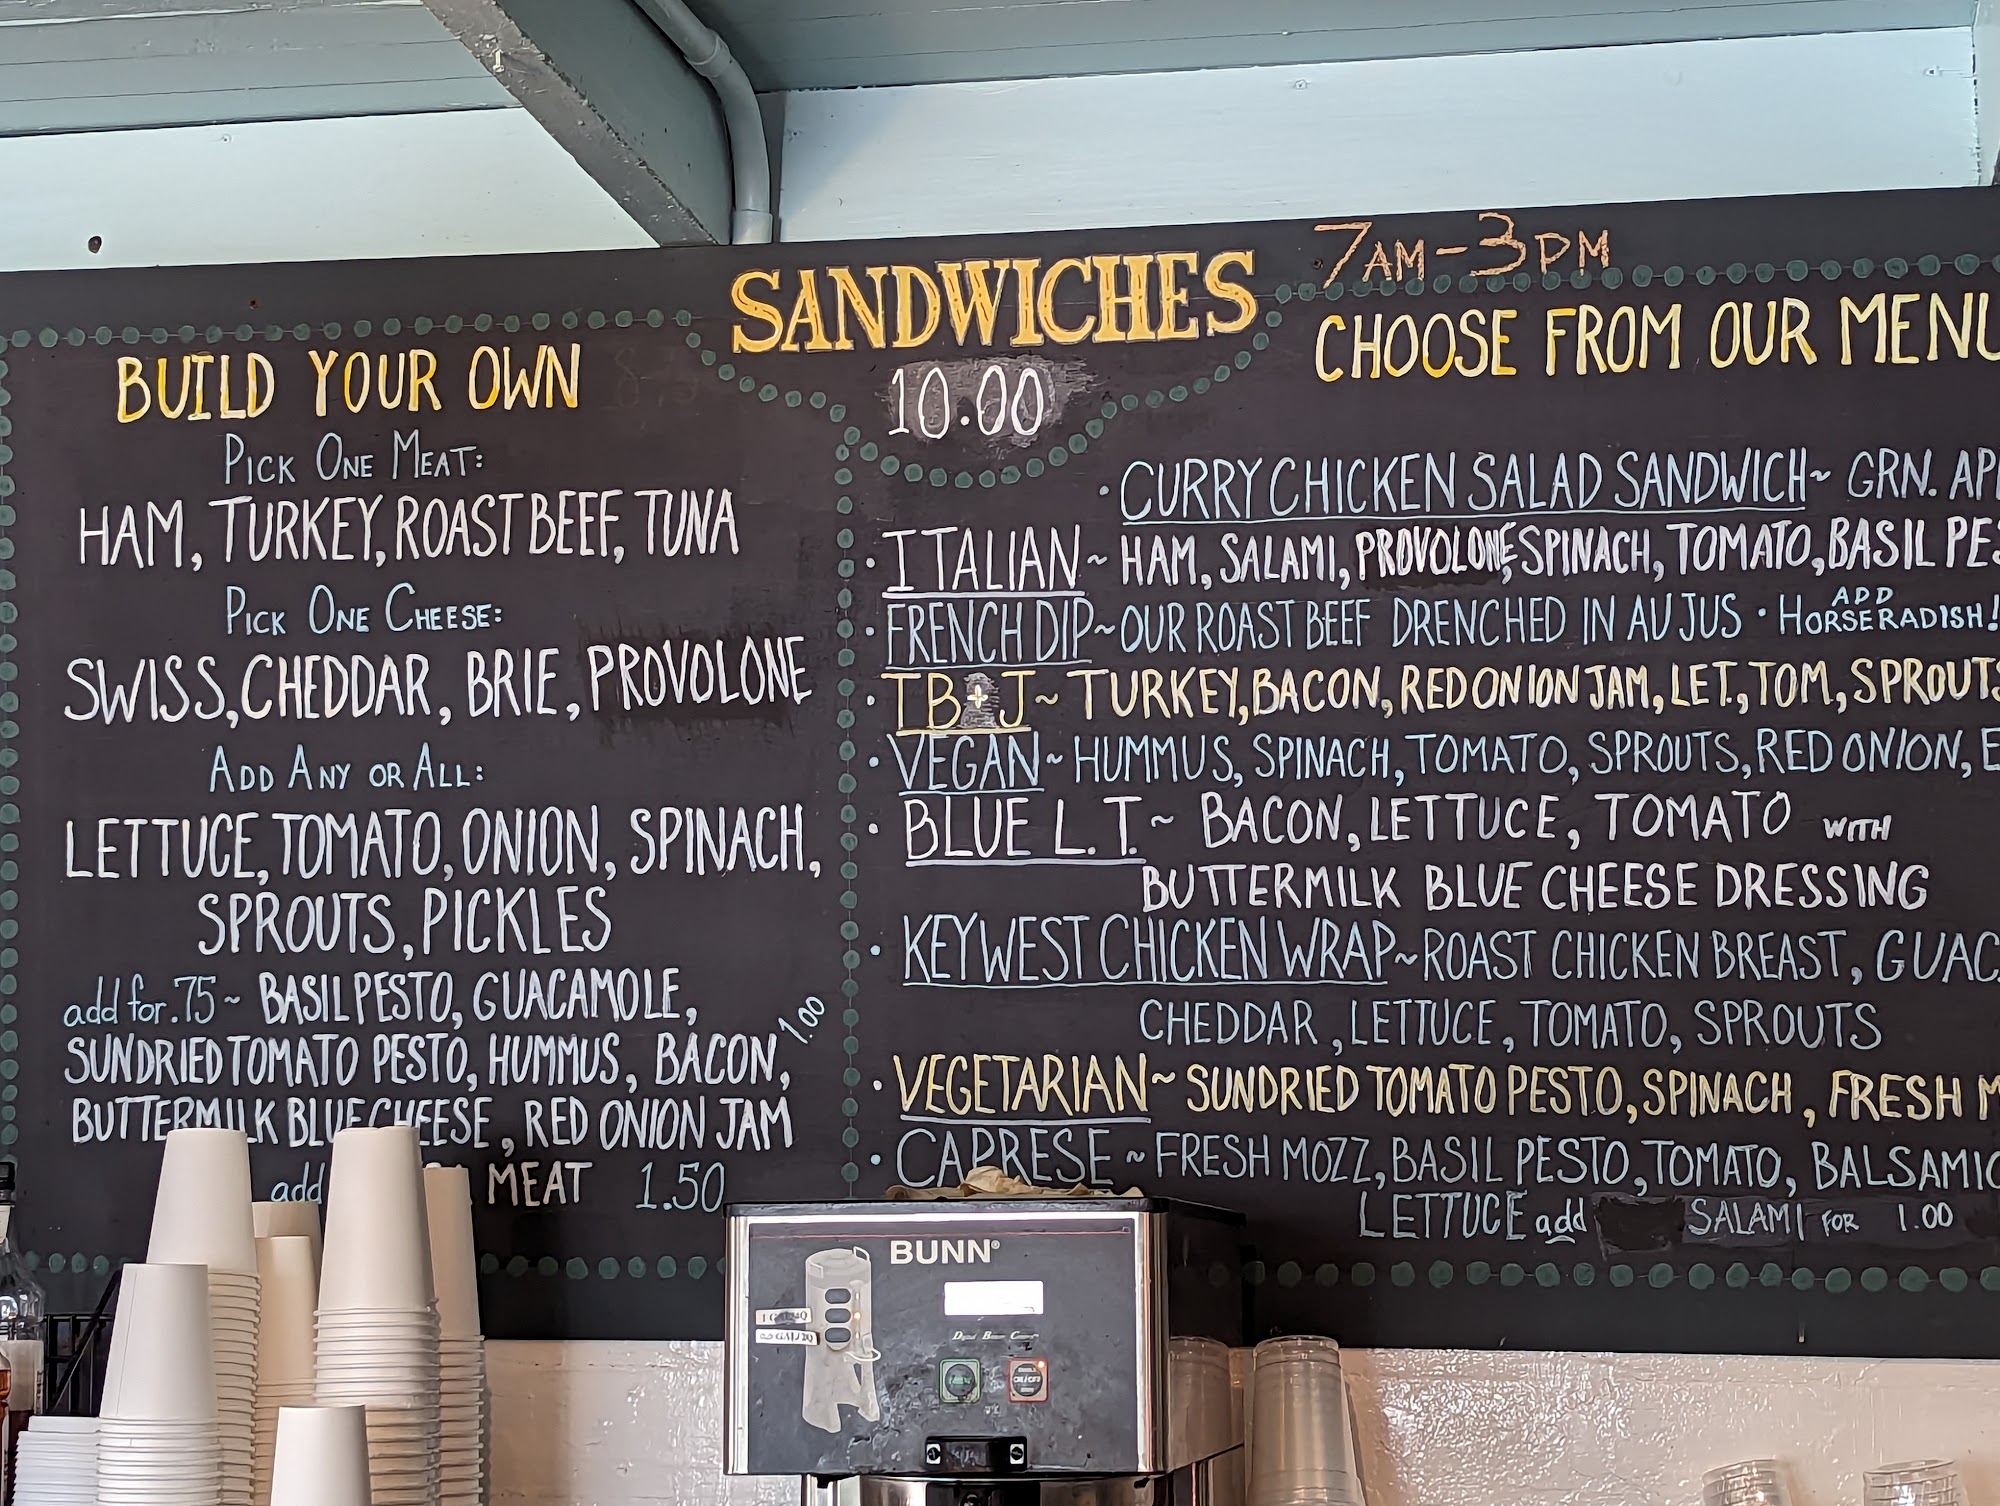 SANDWICHES
10.00
7AM-3PM
BUILD YOUR OWN
PICK ONE MEAT:
HAM, TURKEY, ROAST BEEF, TUNA
PICK ONE CHEESE:
SWISS, CHEDDAR, BRIE, PROVOLONE
ADD ANY OR ALL:
LETTUCE, TOMATO, ONION, SPINACH,
SPROUTS, PICKLES
add for .75~ BASIL PESTO, GUACAMOLE,
SUNDRIED TOMATO PESTO, HUMMUS, BACON, 1.00
BUTTERMILK BLUE CHEESE, RED ONION JAM
add MEAT 1.50
CHOOSE FROM OUR MENU
· CURRY CHICKEN SALAD SANDWICH~ GRN. AP
· ITALIAN~ HAM, SALAMI, PROVOLONE, SPINACH, TOMATO, BASIL PES
· FRENCH DIP~ OUR ROAST BEEF DRENCHED IN AU JUS · ADD HORSERADISH!
· TB+J~ TURKEY, BACON, RED ONION JAM, LET., TOM, SPROUTS
· VEGAN~ HUMMUS, SPINACH, TOMATO, SPROUTS, RED ONION,
· BLUE L.T.~ BACON, LETTUCE, TOMATO WITH
BUTTERMILK BLUE CHEESE DRESSING
· KEY WEST CHICKEN WRAP~ ROAST CHICKEN BREAST, GUAC
CHEDDAR, LETTUCE, TOMATO, SPROUTS
· VEGETARIAN~ SUNDRIED TOMATO PESTO, SPINACH, FRESH M
· CAPRESE~ FRESH MOZZ, BASIL PESTO, TOMATO, BALSAMIC
LETTUCE add SALAMI FOR 1.00
BUNN®